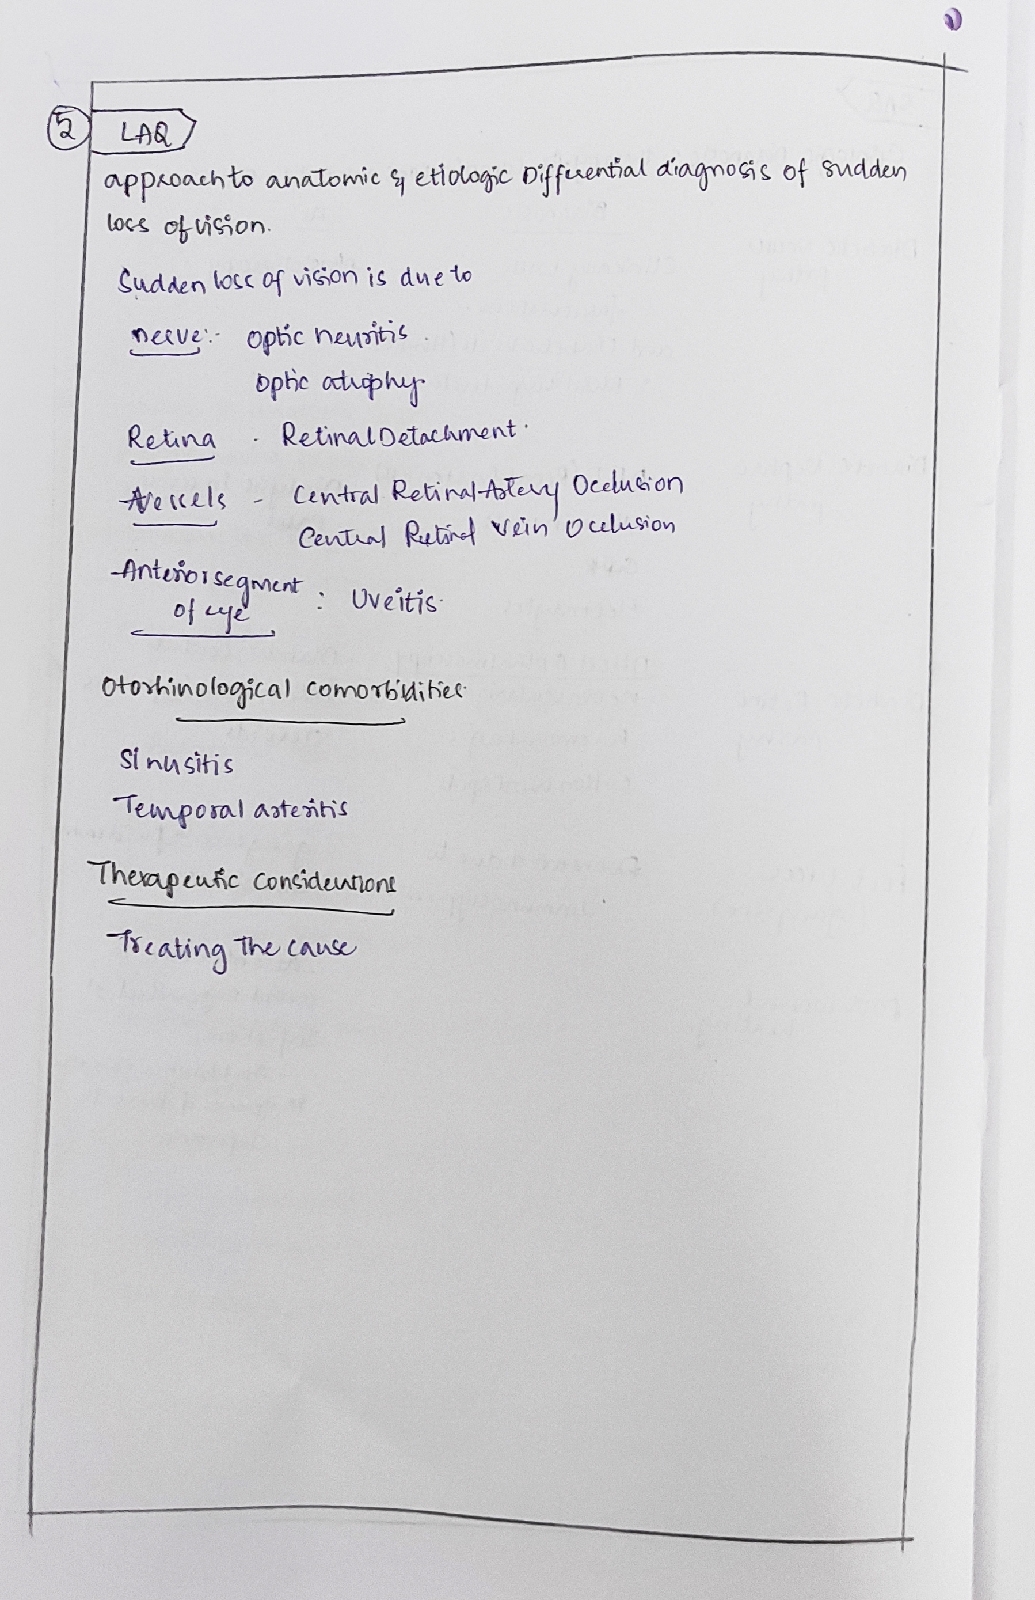 5 LAQ
approach to anatomic & etiologic Differential diagnosis of sudden
loss of vision.
Sudden loss of vision is due to
nerve:- optic neuritis.
optic atrophy
Retina - Retinal Detachment.
Vessels - Central Retinal Artery Occlusion
Central Retinal Vein Occlusion
Anterior segment
of eye : Uveitis.
Otorhinological comorbidities
Sinusitis
Temporal arteritis
Therapeutic considerations
Treating the cause